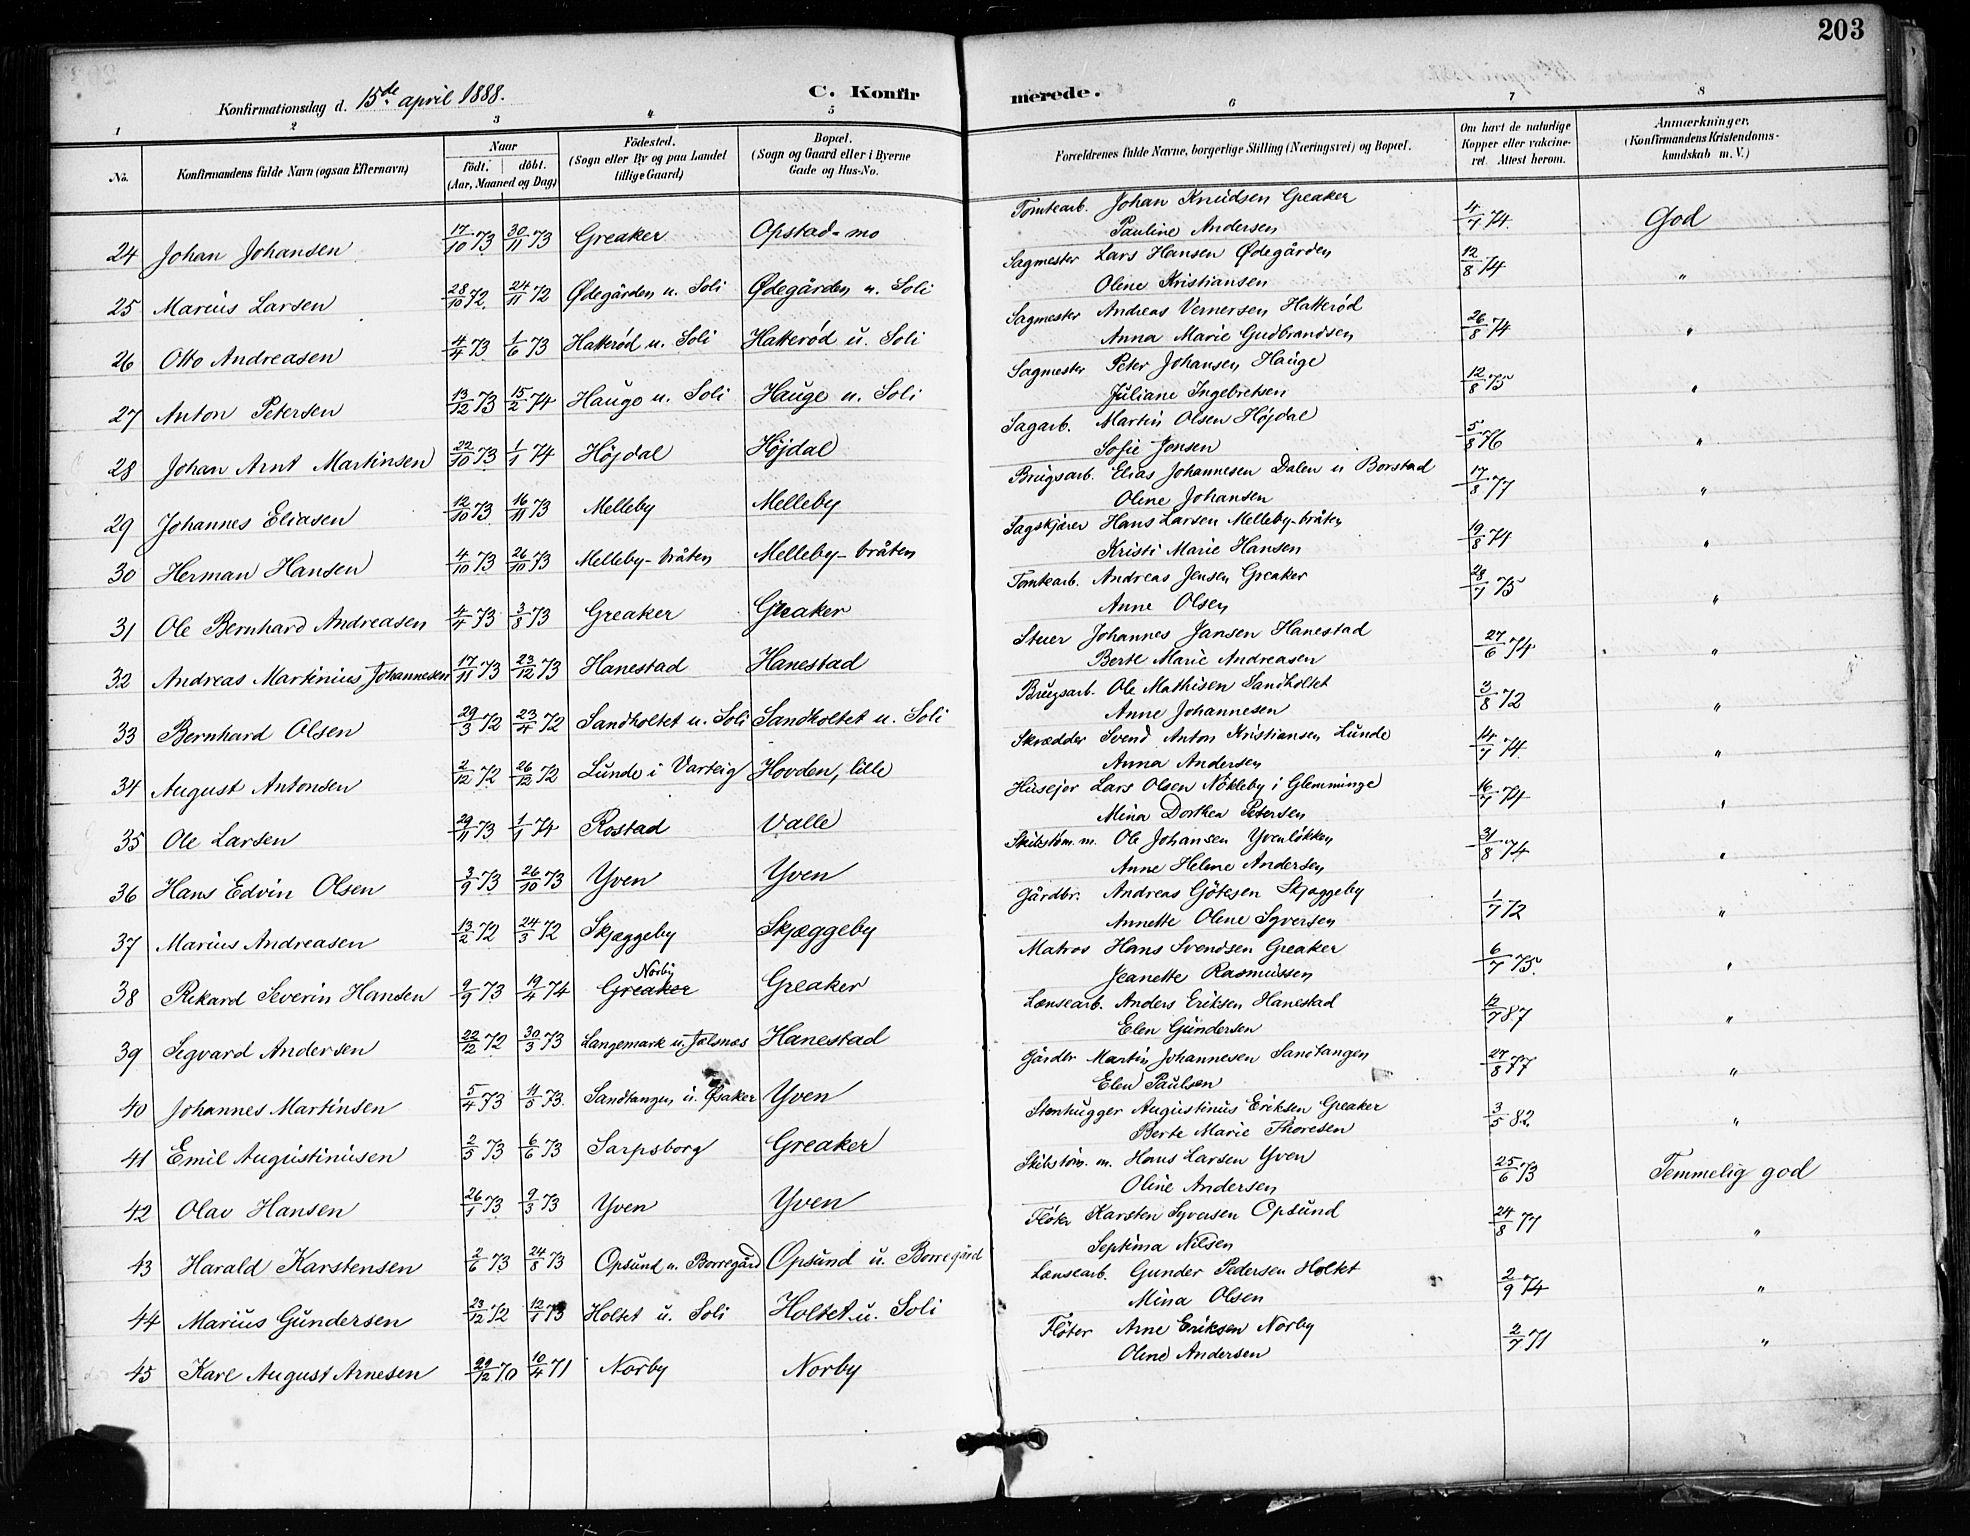 203
Konfirmationsdag d. 15de april 1888.
C. Konfirmerede.
1 2 3 4 5 6 7 8
No.
Konfirmandens fulde Navn (ogsaa Efternavn)
Naar
født. döbt.
(Aar, Maaned og Dag)
Födested.
(Sogn eller By og paa Landet
tillige Gaard)
Bopæl.
(Sogn og Gaard eller i Byerne
Gade og Hus-No.
Forældrenes fulde Navne, borgerlige Stilling (Næringsvei) og Bopæl.
Om havt de naturlige
Kopper eller vakcine-
ret. Attest herom.
Anmærkninger.
(Konfirmandens Kristendoms-
kundskab m. V.)
24 Johan Johansen 17/10 73 30/11 73 Greaker Opstad-mo Tomtearb. Johan Knudsen Greaker 4/7 74. God
Pauline Andersen
25 Marius Larsen 28/10 72 24/11 72 Ødegården u. Soli Ødegården u. Soli Sagmester Lars Hansen Ødegården 12/8 74 "
Oline Kristiansen
26 Otto Andreasen 4/4 73 1/6 73 Hatterød u. Soli Hatterød u. Soli Sagmester Andreas Vernersen Hatterød 26/8 74 "
Anna Marie Gudbrandsen
27 Anton Petersen 13/12 73 15/2 74 Hauge u. Soli Hauge u. Soli Sagmester Peter Johansen Hauge 12/8 75 "
Juliane Ingebretsen
28 Johan Arnt Martinsen 22/10 73 1/1 74 Höjdal Höjdal Sagarb. Martin Olsen Höjdal 5/8 76 "
Sofie Jensen
29 Johannes Eliasen 12/10 73 16/11 73 Melleby Melleby Brugsarb. Elias Johannesen Dalen u Borstad 17/8 77 "
Oline Johansen
30 Herman Hansen 4/10 73 26/10 73 Melleby-bråten Melleby-bråten Sagskjærer Hans Larsen Melleby-bråten 19/8 74 "
Kristi Marie Hansen
31 Ole Bernhard Andreasen 4/4 73 3/8 73 Greaker Greaker Tomtearb. Andreas Jensen Greaker 28/7 75 "
Anne Olsen
32 Andreas Martinius Johannesen 17/11 73 23/12 73 Hanestad Hanestad Stuer Johannes Jansen Hanestad 27/6 74 "
Berte Marie Andreasen
33 Bernhard Olsen 29/3 72 23/4 72 Sandholtet u. Soli Sandholtet u. Soli Brugsarb. Ole Mathisen Sandholtet 3/8 72 "
Anne Johannesen
34 August Antonsen 2/12 72 26/12 72 Lunde i Varteig Hovden, lille Skrædder Svend Anton Kristiansen Lunde 14/7 74. "
Anna Andersen
35 Ole Larsen 29/11 73 1/1 74 Rostad Valle Husejer Lars Olsen Nökleby i Glemminge 16/7 74 "
Mina Dorthea Petersen
36 Hans Edvin Olsen 3/9 73 26/10 73 Yven Yven Skibstöm. m. Ole Johansen Yvenlökken 31/8 74 "
Anne Helene Andersen
37 Marius Andreasen 13/2 72 24/3 72 Skjæggeby Skjæggeby Gårdbr. Andreas Götesen Skjæggeby 1/7 72 "
Annette Oline Syversen
38 Rikard Severin Hansen 9/9 73 19/4 74 Greaker Norby Greaker Matros Hans Svendsen Greaker 6/7 75. "
Jeanette Rasmussen
39 Segvard Andersen 22/12 72 30/3 73 Langemark u. Jelsnæs Hanestad Lænsearb. Anders Eriksen Hanestad 12/7 87 "
Elen Gundersen
40 Johannes Martinsen 5/4 73 11/5 73. Sandtangen u. Øsaker Yven Gårdbr Martin Johannesen Sandtangen 27/8 77 "
Elen Paulsen
41 Emil Augustinusen 2/5 73 6/6 73 Sarpsborg Greaker Stenhugger Augustinus Eriksen Greaker 3/5 82. "
Berte Marie Thoresen
42 Olav Hansen 26/1 73 9/3 73 Yven Yven Skibstöm. m. Hans Larsen Yven 25/6 73 Temmelig god
Oline Andersen
43 Harald Karstensen 2/6 73 24/8 73 Opsund u. Borregård Opsund u. Borregård Flöter Karsten Syversen Opsund 24/8 77 "
Septima Nilsen
44 Marius Gundersen 23/12 72 12/1 73 Holtet u. Soli Holtet u. Soli Lænsearb. Gunder Pedersen Holtet 2/9 74 "
Mina Olsen
45 Karl August Arnesen 29/12 70 10/4 71 Norby Norby Flöter Arne Eriksen Norby 2/7 71 "
Oline Andersen